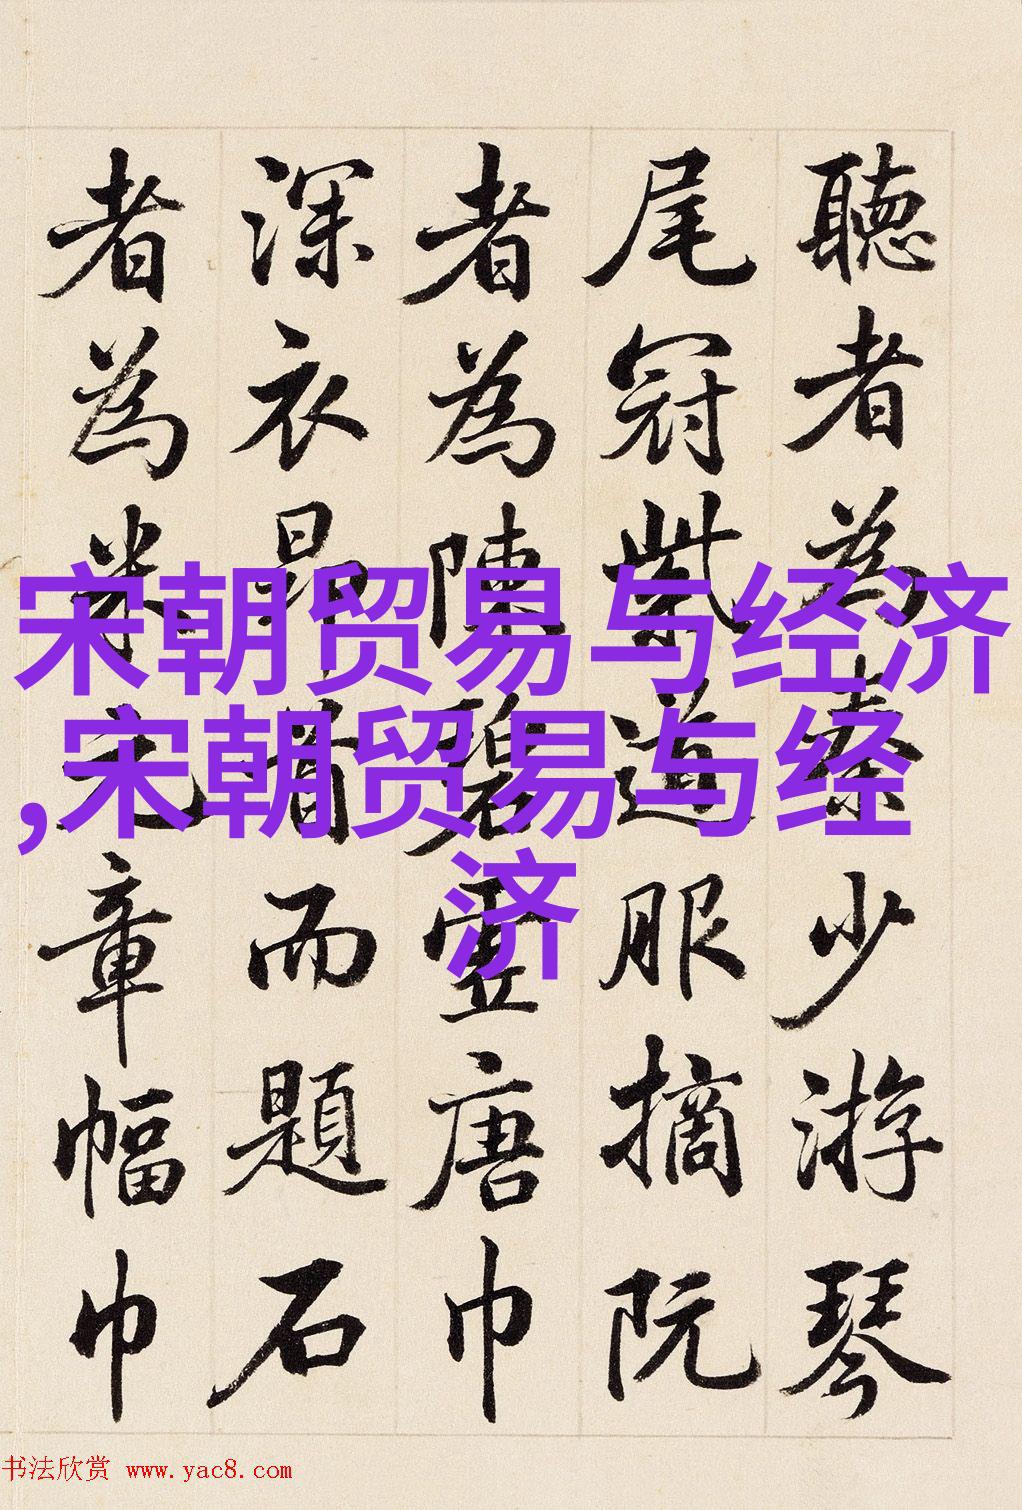 聽者為秦少游琴
尾冠紫道服摘阮
者為陳碧虛唐巾
深衣昂首而題石
者為米元章幅巾
宋朝贸易与经济
,宋朝贸易与经
济
书法欣赏 www.yac8.com